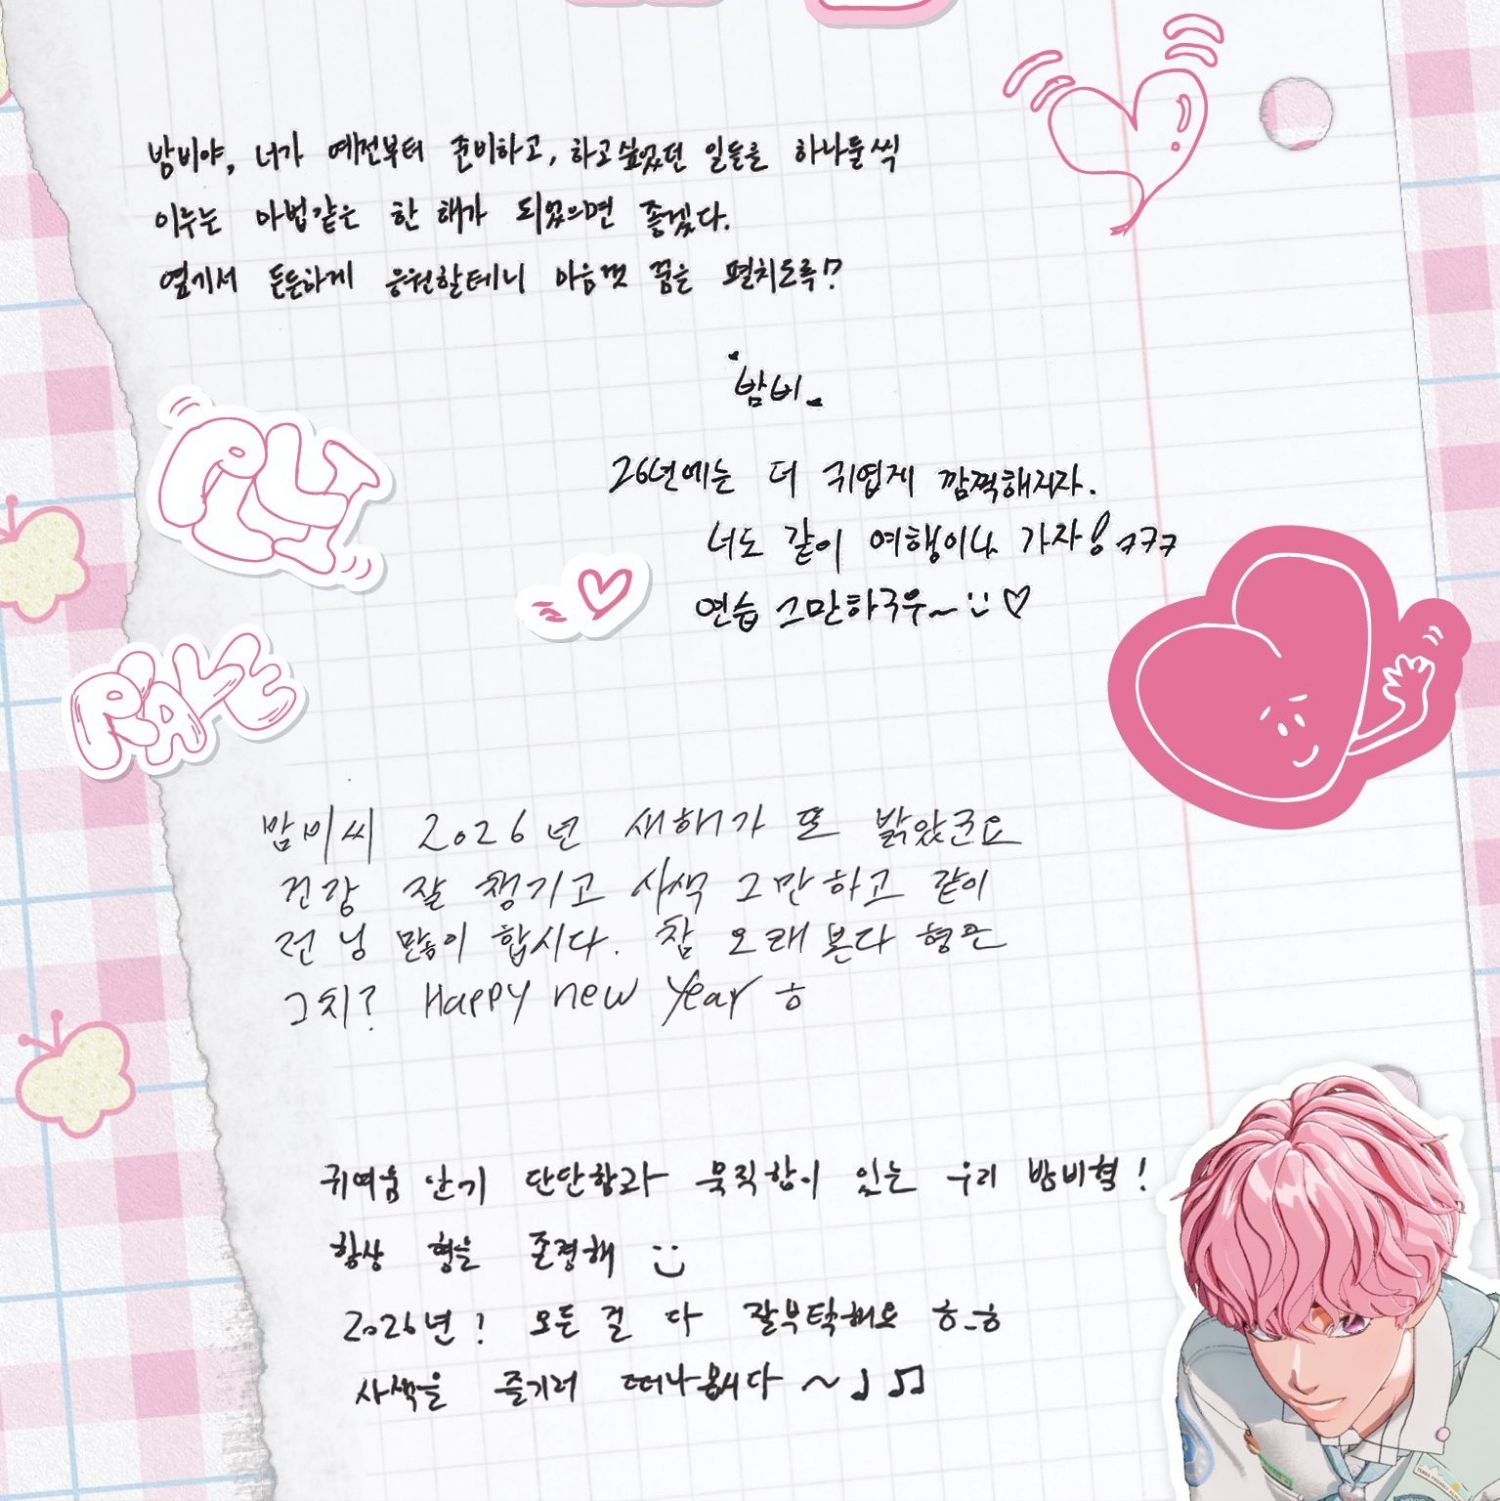 밤비야, 너가 예전부터 준비하고, 하고싶었던 일들을 하나둘씩
이루는 마법같은 한 해가 되었으면 좋겠다.
옆에서 든든하게 응원할테니 마음껏 꿈을 펼치도록!?
밤비
26년에는 더 귀엽게 깜찍해지자.
너도 같이 여행이나 가자! ㅋㅋㅋ
연습 그만하구우~ :) ♡
PLLI
PLAVE
밤비씨 2026년 새해가 또 밝았군요
건강 잘 챙기고 사색 그만하고 같이
전닝 많이 합시다. 참 오래본다 형은
그치? Happy new year ㅎ
귀여움 단기 단단함과 묵직함이 있는 우리 밤비형!
항상 형을 존경해 :)
2026년! 모든걸 다 잘부탁해요 ㅎ_ㅎ
사색을 즐기러 떠나봅시다 ~♩♫